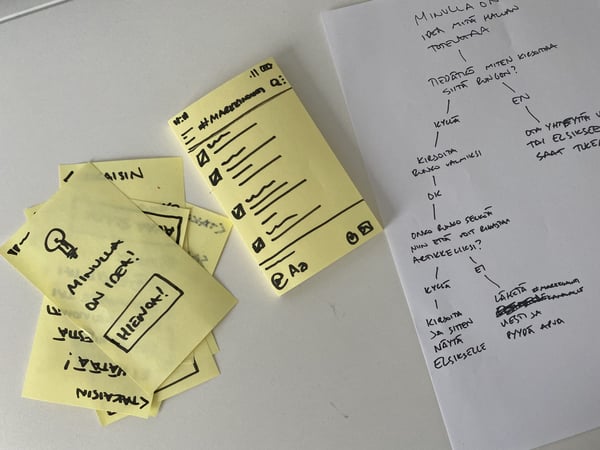 MINULLA
ON IDEA!
HIENOA!
NISIIN
ESTÄ
ÄTÄÄ!
<TAKAISIN
#MARKKINOINTI
@ Aa
MINULLA ON
IDEA MITÄ HALUAN
TOTEUTTAA
TIEDÄTKÖ MITEN KIRJOITTAA
SIITÄ RUNGON?
KYLLÄ
EN
KIRJOITA
RUNKO VALMIIKSI
OTA YHTEYTTÄ
TAI ELSIKSELLE
SAAT TUKEA
OK
ONKO RUNKO SELKEÄ
NIIN ETTÄ VOIT RUVETA
ARTIKKELIKSI?
KYLLÄ
EI
KIRJOITA
JA SITTEN
NÄYTÄ
ELSIKSELLE
LÄHETÄ
VIESTI JA
PYYDÄ APUA